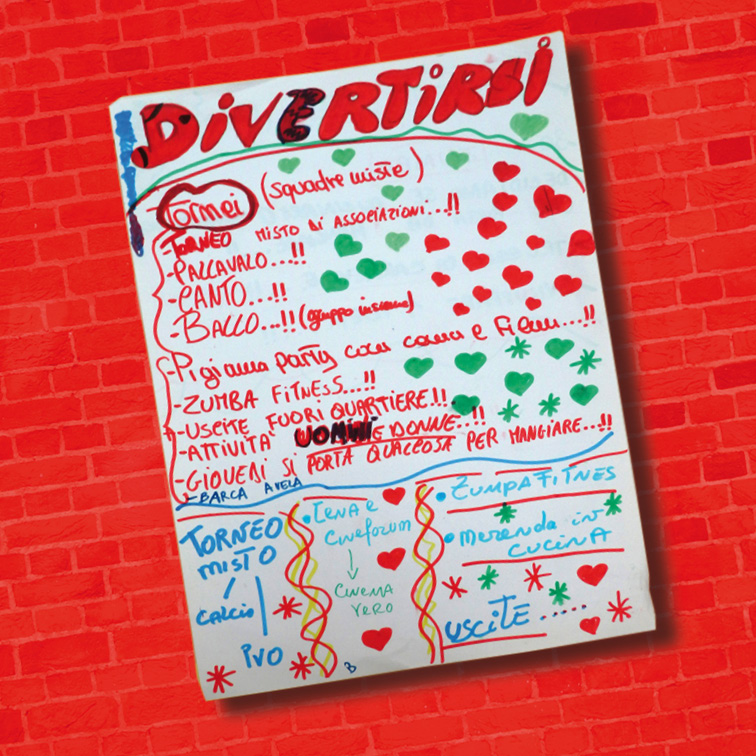 DIVERTIRSI
Tornei (squadre miste)
-TORNEO MISTO DI ASSOCIAZIONI...!!
-PALLAVALO...!!
-CANTO...!!
-BALLO...!! (gruppo insieme)
-Pigiama party con cena e Film...!!
-ZUMBA FITNESS...!!
-USCITE FUORI QUARTIERE!!.
-ATTIVITA' UOMINI E DONNE..!!
-GIOVEDI SI PORTA QUALCOSA PER MANGIARE...!!
-BARCA A VELA
TORNEO
MISTO
/
CALCIO
PVO
• CENA e
Cineforum
↓
CINEMA
VERO
• ZUMPA FITNES
• merenda in
CUCINA
USCITE.....